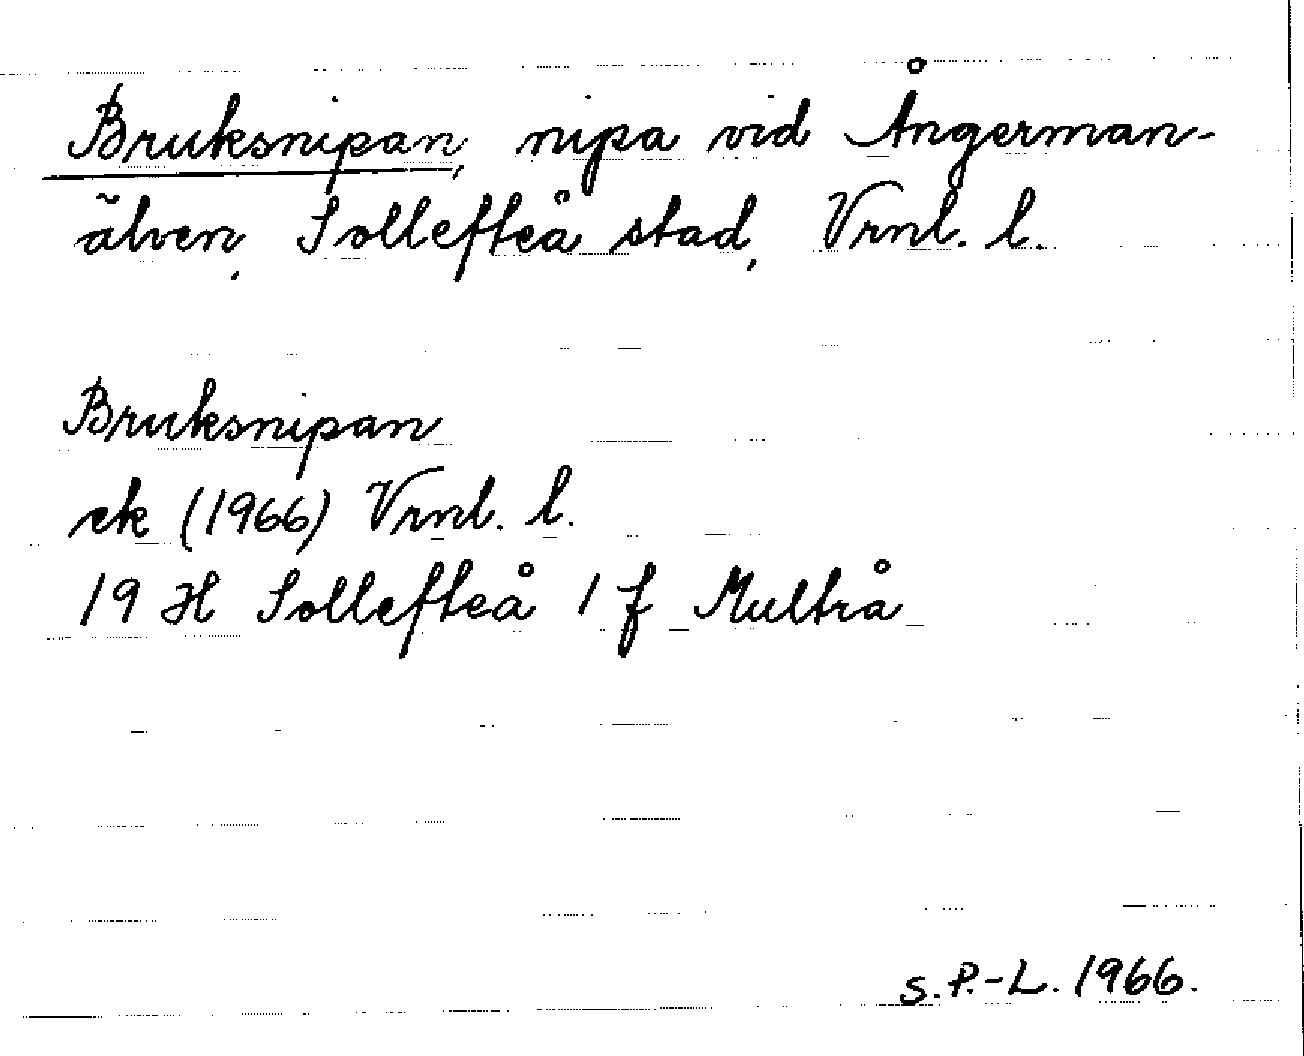 Bruksnipan, nipa vid Ångerman-
älven, Sollefteå stad, Vrnl. l.
Bruksnipan
ek (1966) Vrnl. l.
19 H Sollefteå 1 f Multrå
S. P.-L. 1966.